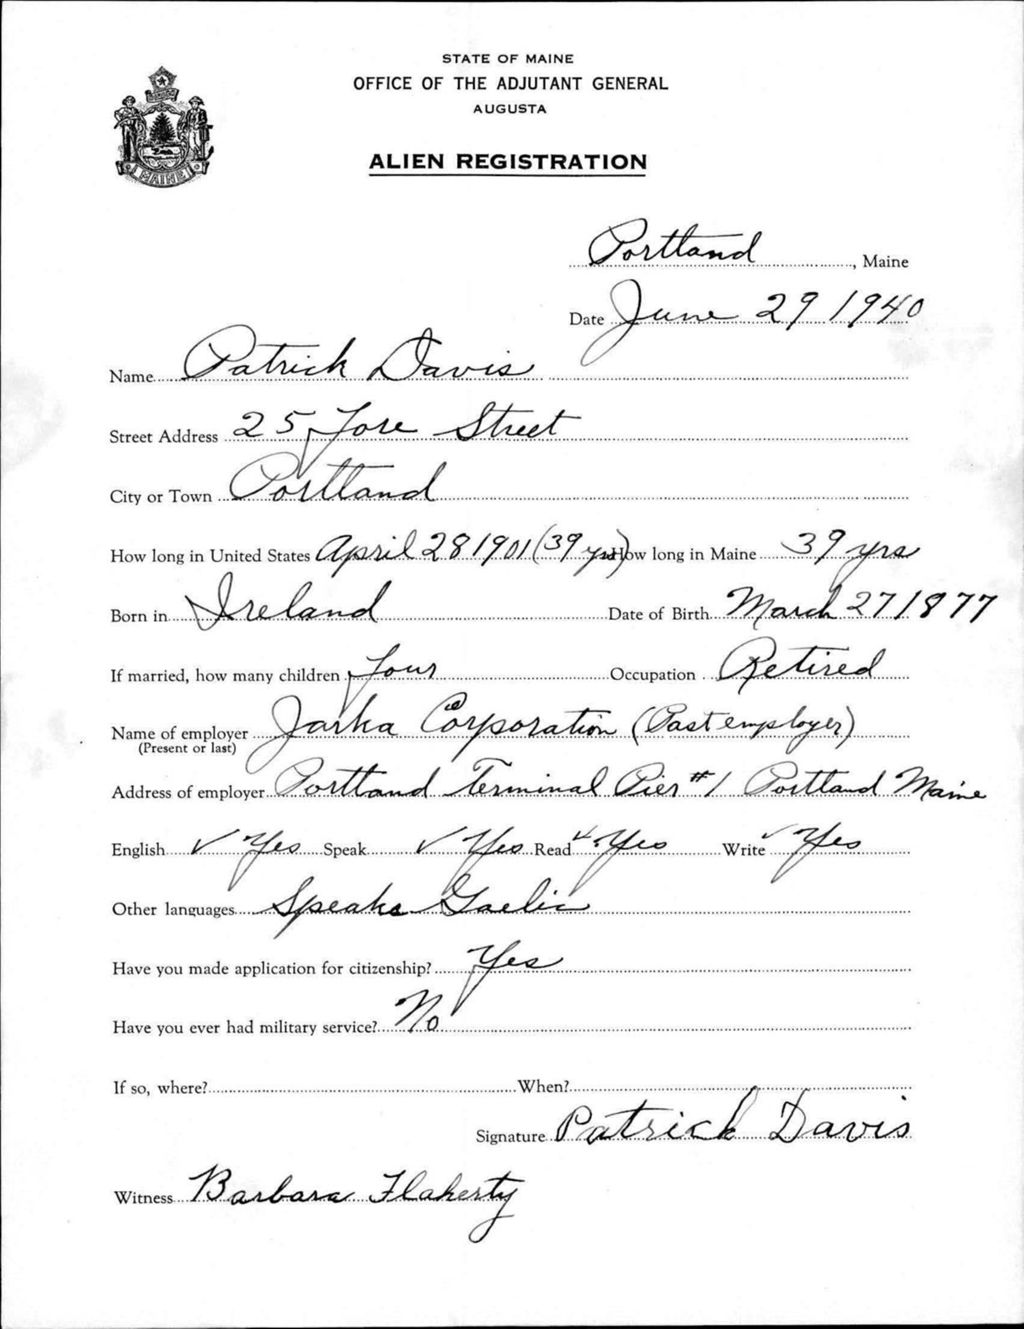 STATE OF MAINE
OFFICE OF THE ADJUTANT GENERAL
AUGUSTA
ALIEN REGISTRATION
MAINE
Portland, Maine
Date June 29 1940
Name Patrick Davis
Street Address 25 Fore Street
City or Town Portland
How long in United States April 28 1901 (39 yrs) How long in Maine 39 yrs
Born in Ireland Date of Birth March 27 1877
If married, how many children Four Occupation Retired
Name of employer Jarka Corporation (Past employer)
(Present or last)
Address of employer Portland Terminal Pier #1 Portland Maine
English ✓ Yes Speak ✓ Yes Read ✓ Yes Write ✓ Yes
Other languages Speaks Gaelic
Have you made application for citizenship? Yes
Have you ever had military service? No
If so, where? When?
Signature Patrick Davis
Witness Barbara Flaherty